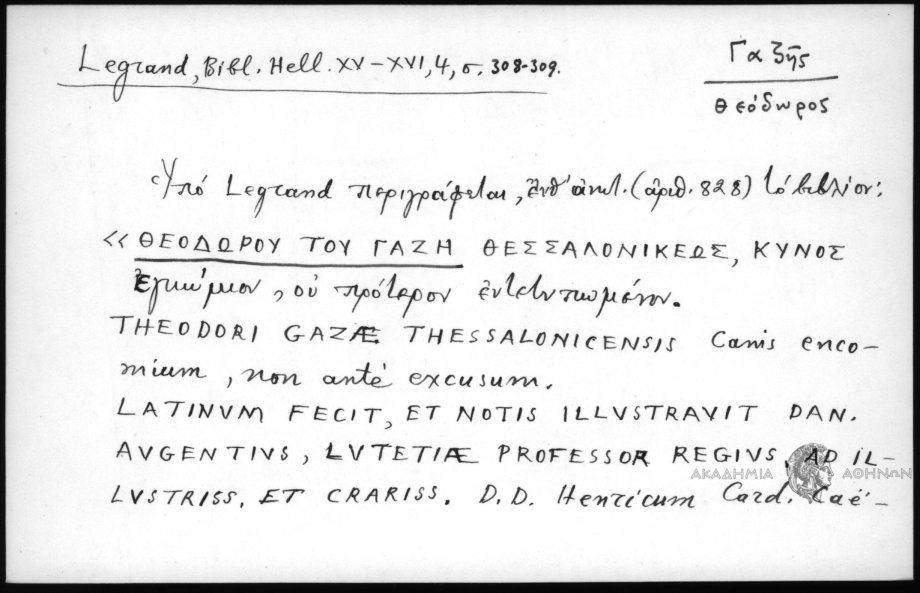 Legrand, Bibl. Hell. XV–XVI, 4, σ. 308-309.
Γαζῆς
Θεόδωρος
Ὑπό Legrand περιγράφεται, ἐνθ' ἀνωτ. (ἀριθ. 828) τό βιβλίον:
«ΘΕΟΔΩΡΟΥ ΤΟΥ ΓΑΖΗ ΘΕΣΣΑΛΟΝΙΚΕΩΣ, ΚΥΝΟΣ
ἐγκώμιον, οὐ πρότερον ἐντετυπωμένον.
THEODORI GAZÆ THESSALONICENSIS Canis enco–
mium, non antè excusum.
LATINVM FECIT, ET NOTIS ILLVSTRAVIT DAN.
AVGENTIVS, LVTETIÆ PROFESSOR REGIVS, AD IL–
LVSTRISS. ET CRARISS. D.D. Henricum Card. Caé–
ΑΚΑΔΗΜΙΑ ΑΘΗΝΩΝ